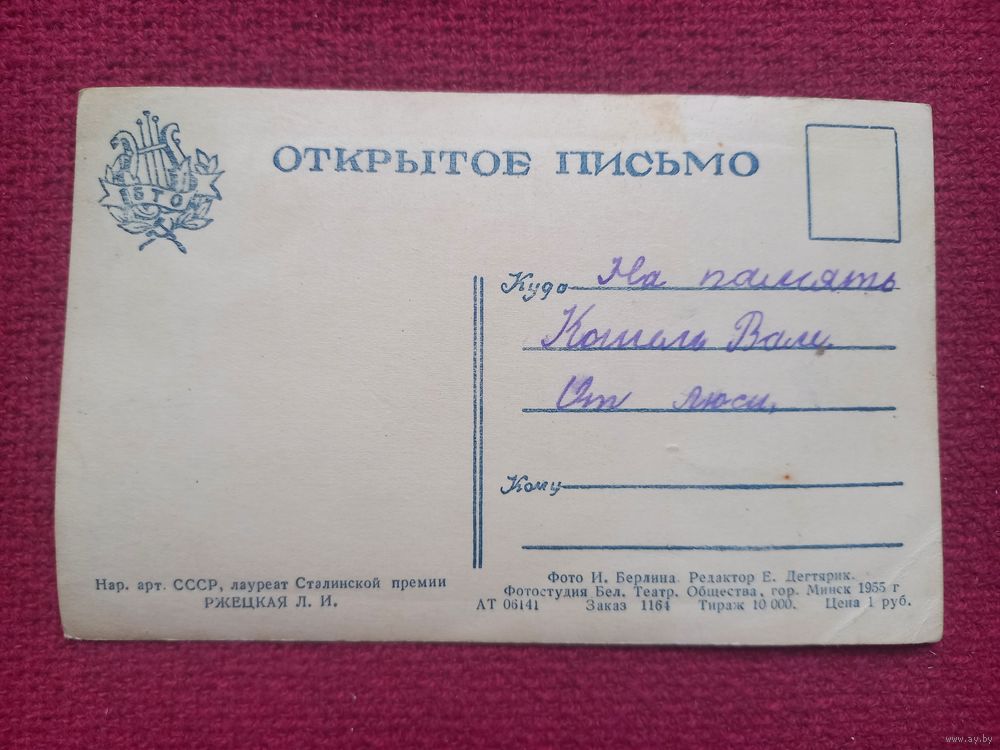 БТО
ОТКРЫТОЕ ПИСЬМО
Куда На память
Кошель Вале
От Люси.
Кому
Нар. арт. СССР, лауреат Сталинской премии
РЖЕЦКАЯ Л. И.
Фото И. Берлина. Редактор Е. Дегтярик.
Фотостудия Бел. Театр. Общества, гор. Минск 1955 г
АТ 06141 Заказ 1164 Тираж 10 000. Цена 1 руб.
www.ay.by